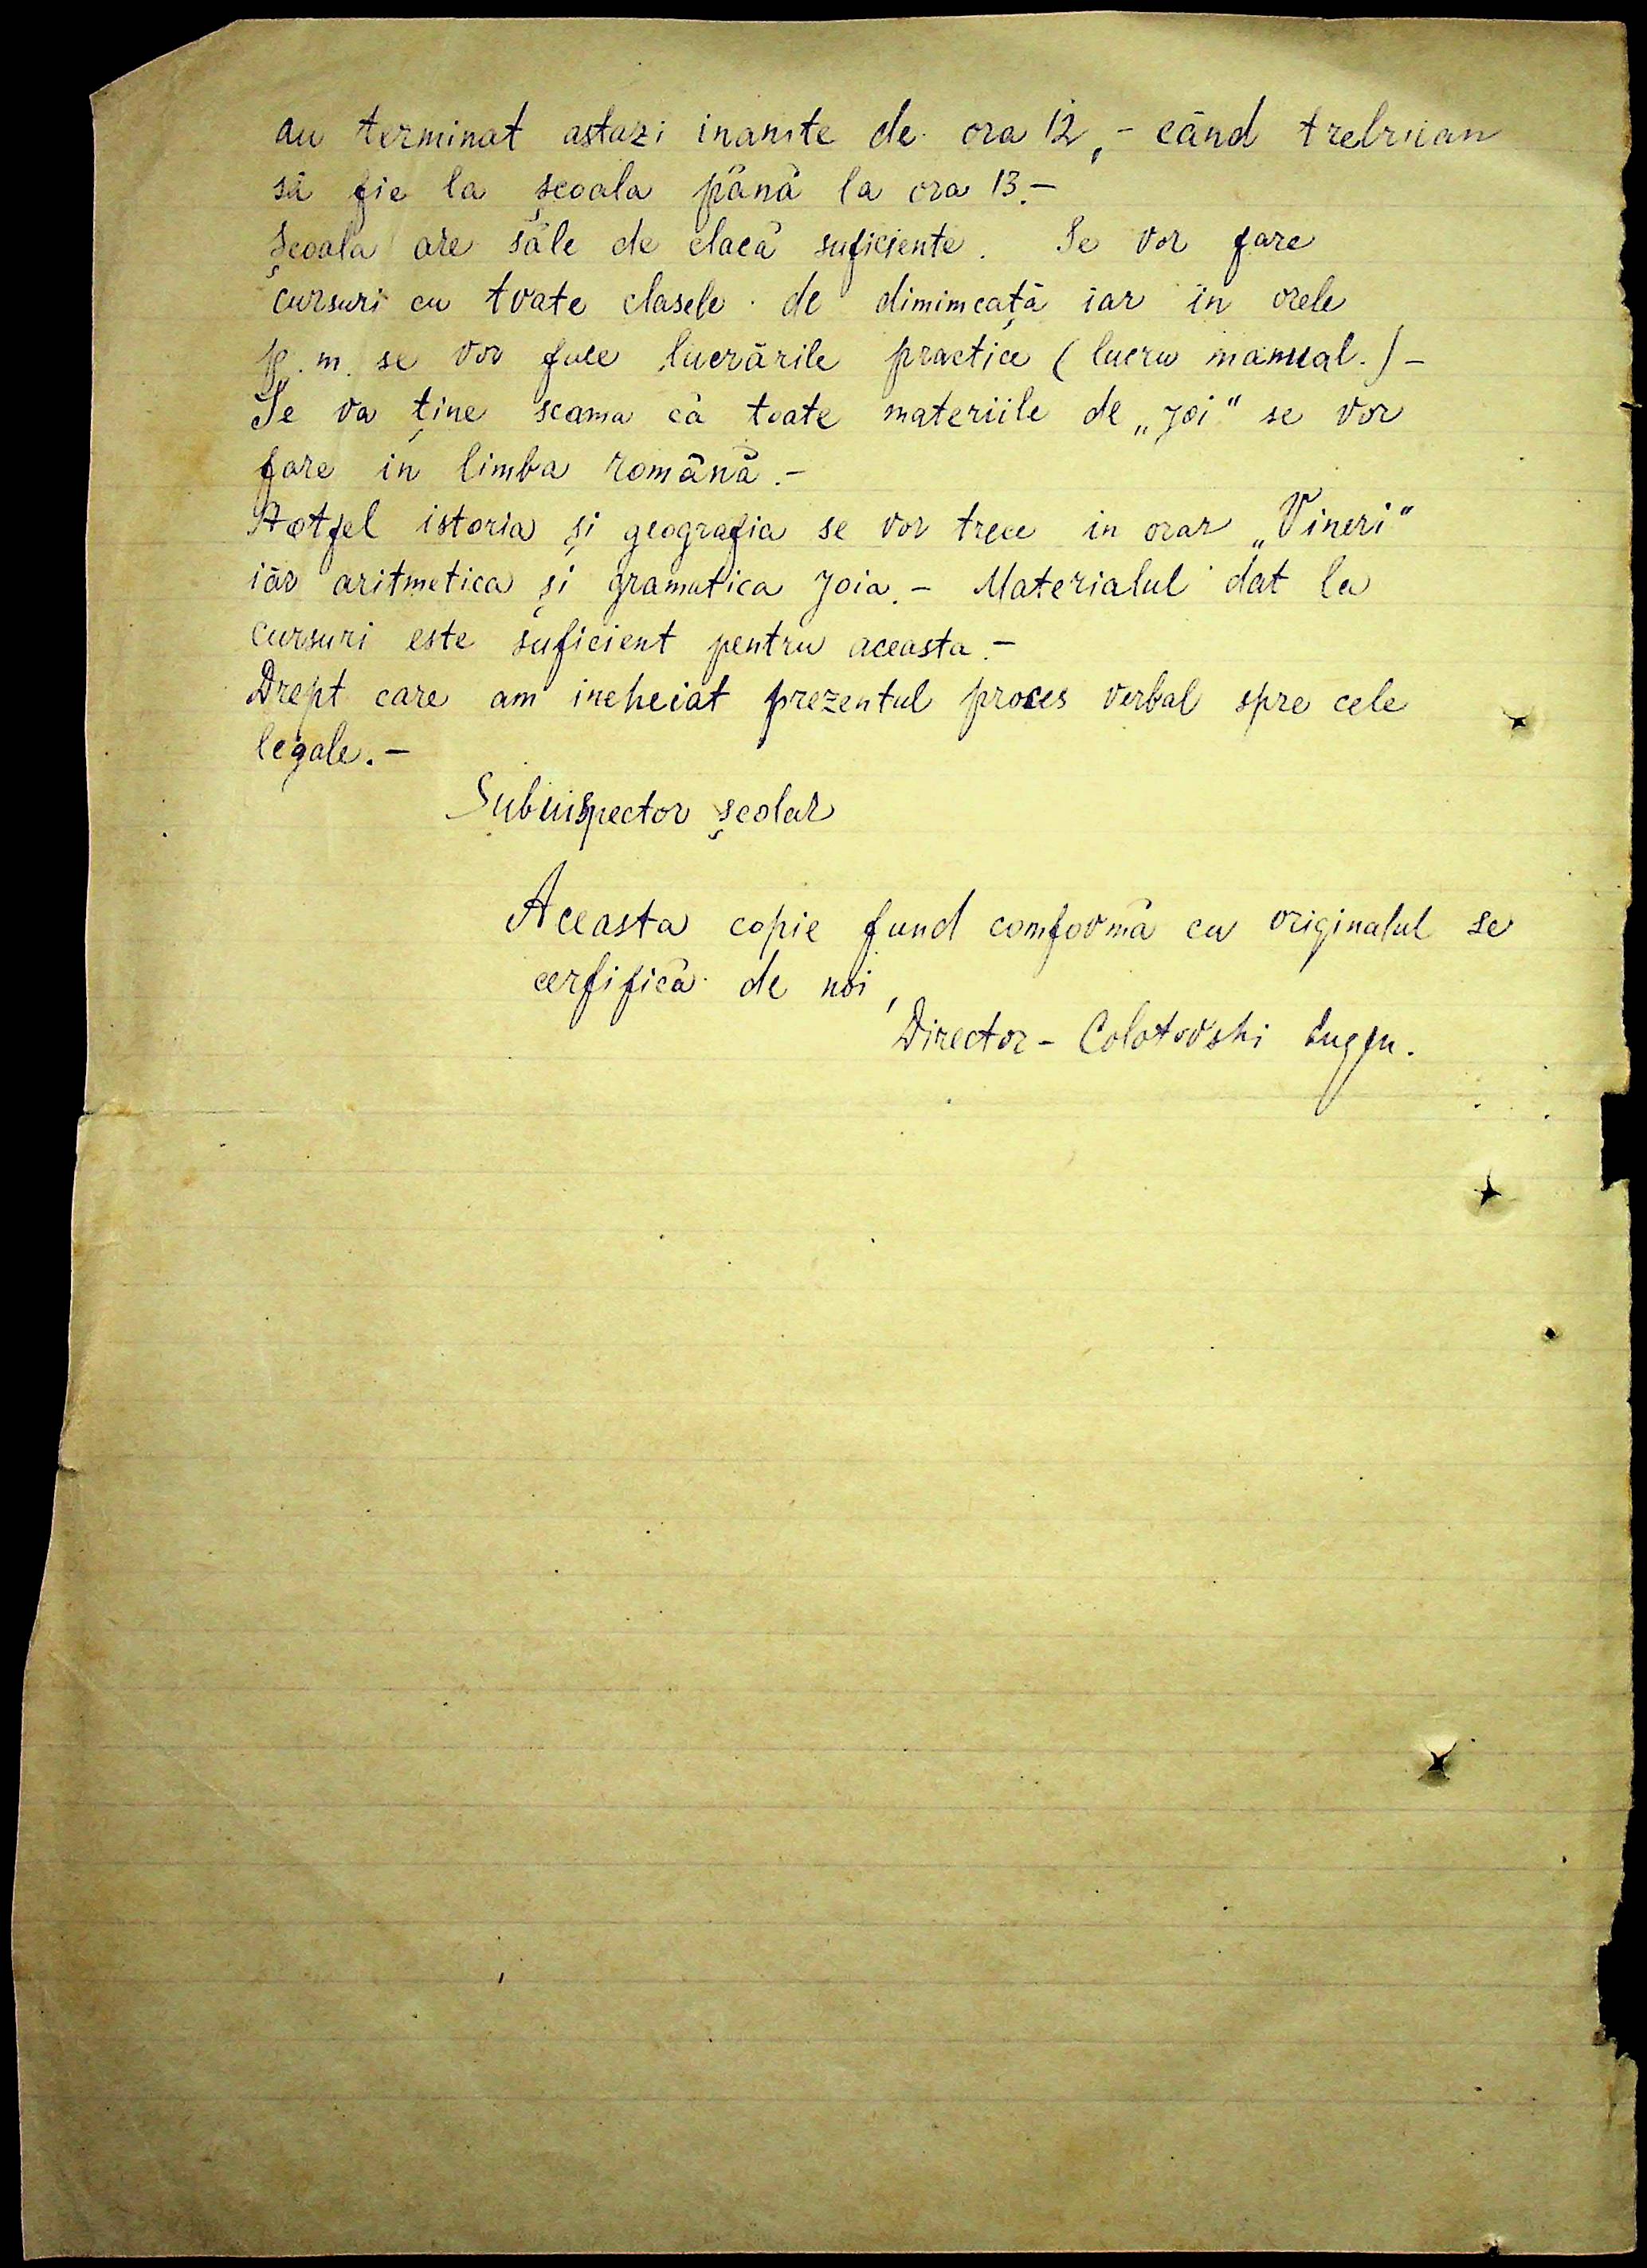 au terminat astazi inainte de ora 12,- când trebuiau
să fie la școala până la ora 13.-
Școala are săle de clacă suficiente. Se vor fare
cursuri cu toate clasele de dimimeață iar in orele
p. m. se vor face lucrările practice (lucru manual.)-
Se va ține scama că toate materiile de „Joi" se vor
fare in limba română.-
Astfel istoria și geografia se vor trece in orar „Vineri"
iar aritmetica și gramatica Joia.- Materialul dat la
cursuri este suficient pentru aceasta.-
Drept care am incheiat prezentul proces verbal spre cele
legale.-
Subinspector școlar
Aceasta copie fiind comformă cu originalul se
cerfifică de noi,
Director - Colotovshi Eugen.